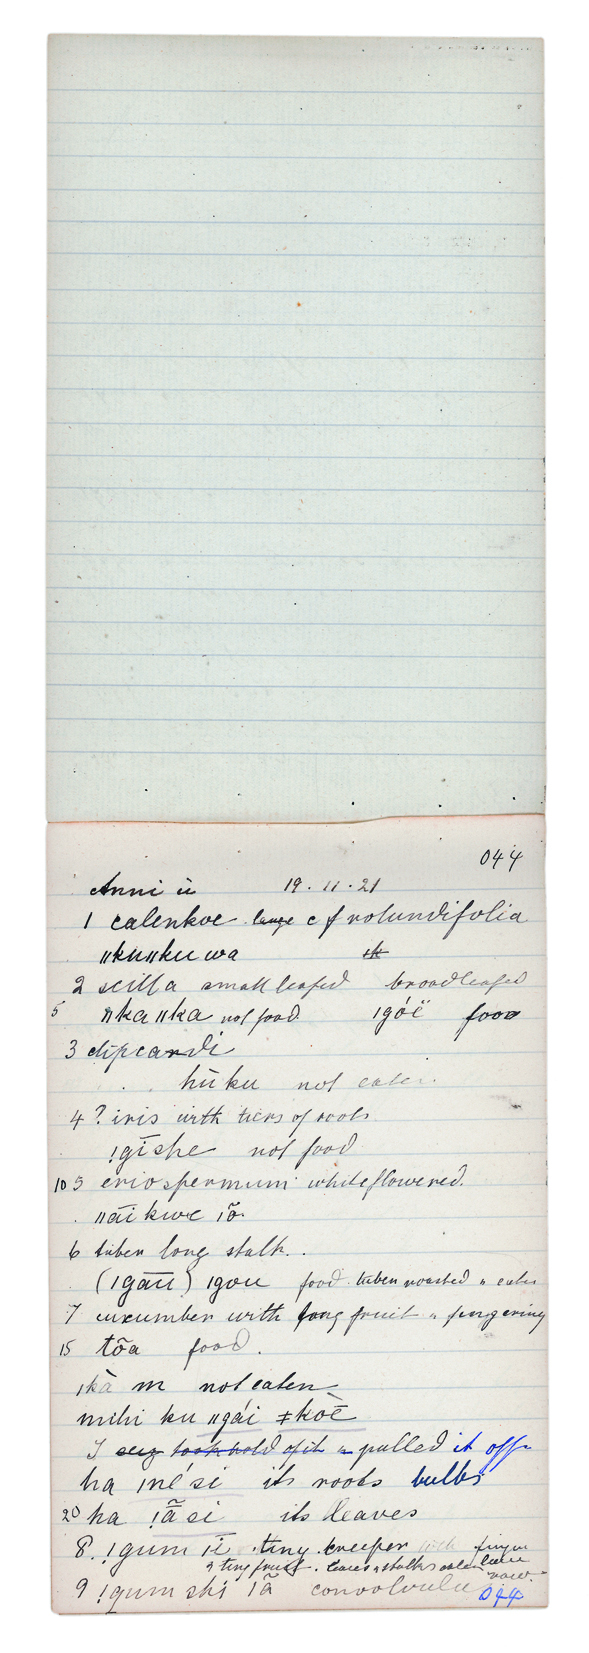 044
Anni ü 19.11.21
1 calenkoe large cf rotundifolia
ǁkuǁku wa
2 scilla small leafed broadleafed
5 ǁkaǁka not food ǀgóë food
3 dipcardi
hūku not eaten
4 ? iris with tiers of roots
ǃgīshe not food
10 5 eriospermum whiteflowered.
ǁāikwe ǀõ
6 tuber long stalk.
(ǀgāū) ǀgou food tuber roasted & eaten
7 cucumber with long fruit &
15 tōa food.
ǀkà m not eaten
mihi ku ǁgái ǂkoē
I took hold of it & pulled it off
ha ǀné si its roots bulbs
20 ha ǃã si its leaves
8. ǃgum ǀī tiny creeper with finger
& tiny fruit. leaves & stalks eaten raw.
9 ǃgum shi ǀā convolvulu
044